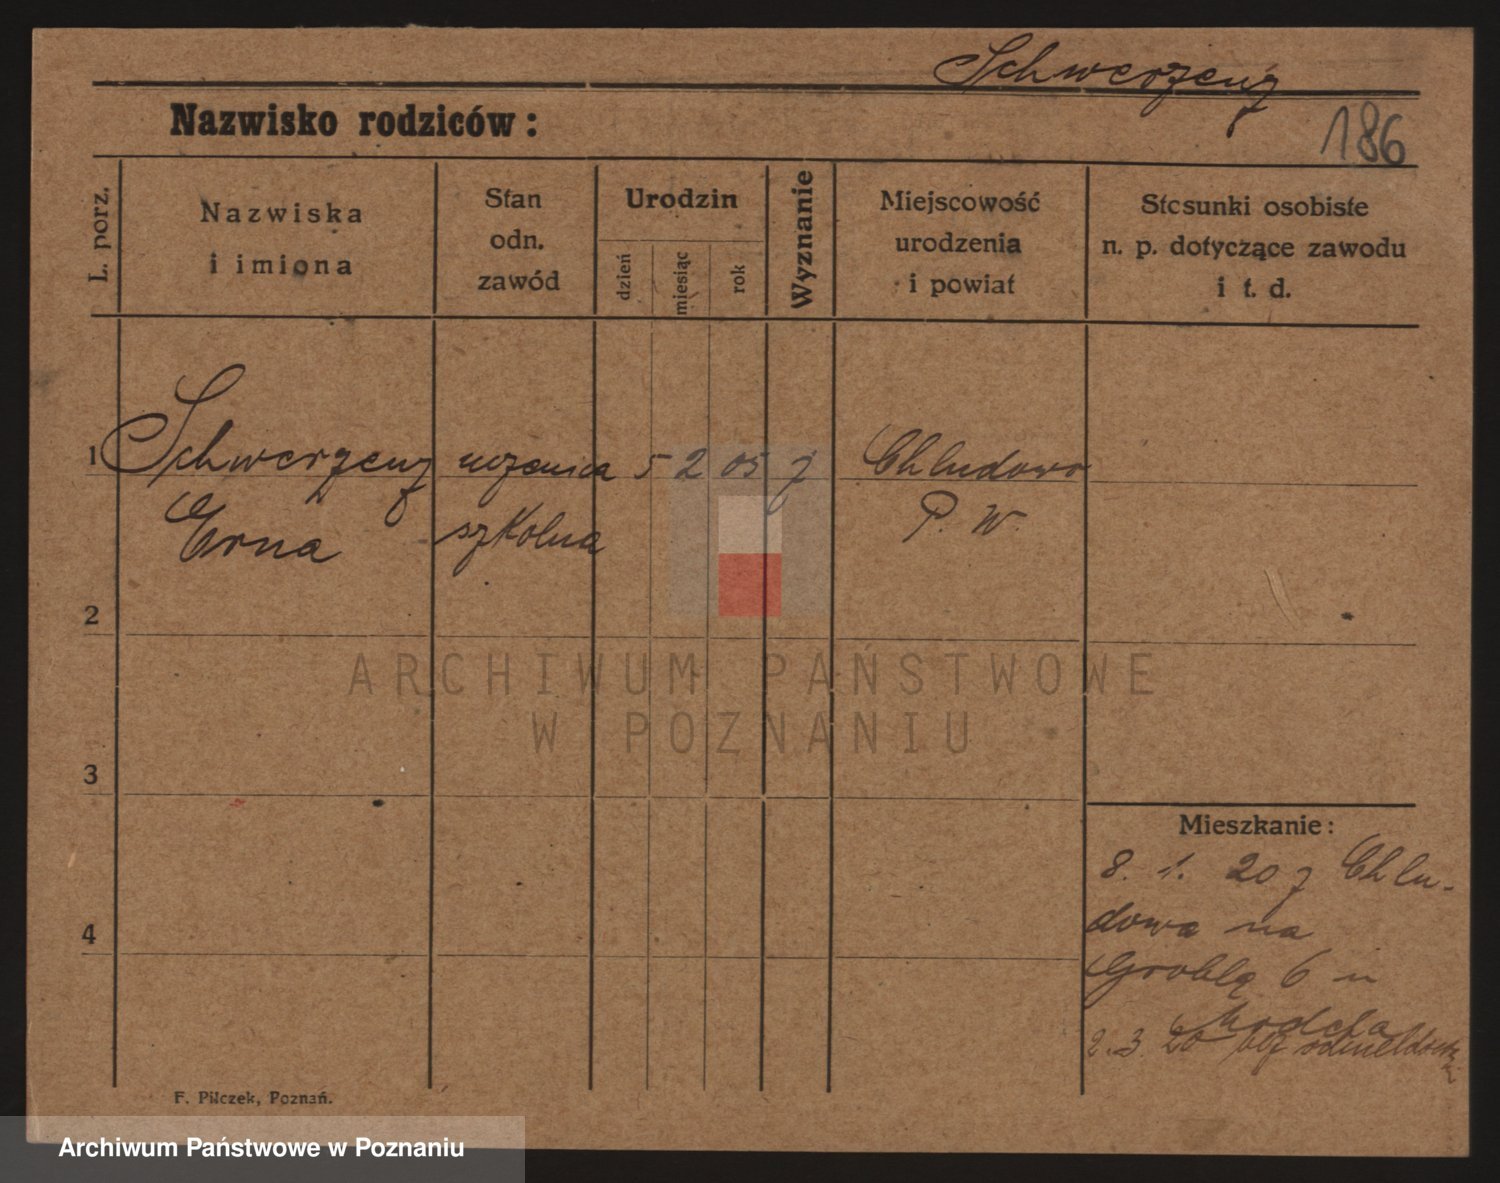 Schwerzenz
Nazwisko rodziców:
186
L. porz.
Nazwiska
i imiona
Stan
odn.
zawód
Urodzin
dzień
miesiąc
rok
Wyznanie
Miejscowość
urodzenia
i powiat
Stosunki osobiste
n. p. dotyczące zawodu
i t. d.
1 Schwerzenz uczenica 5 2 05 ż Chludowo
Erna szkolna P. W.
2
ARCHIWUM PAŃSTWOWE
W POZNANIU
3
Mieszkanie:
8. 1. 20 z Chlu-
dowa na
4
Groblę 6 u
2. 3. 20 bez
F. Pilczek, Poznań.
Archiwum Państwowe w Poznaniu